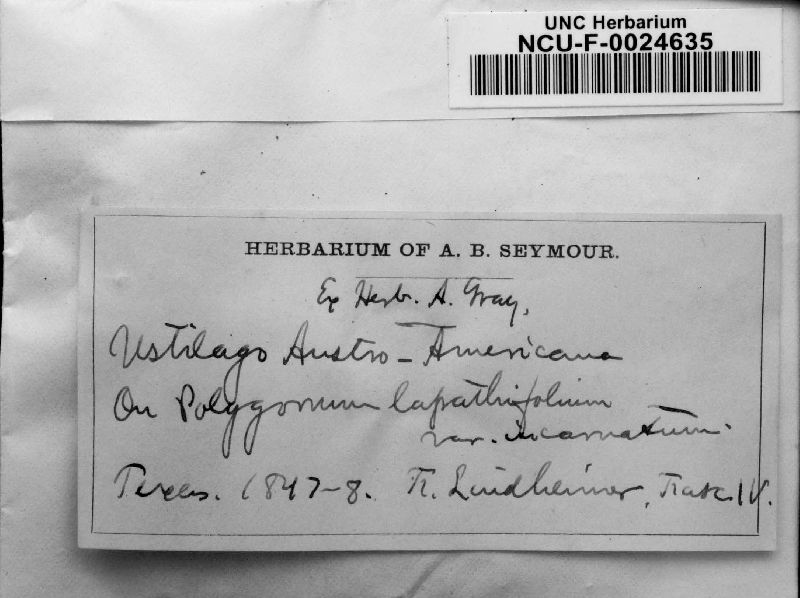 UNC Herbarium
NCU-F-0024635
HERBARIUM OF A. B. SEYMOUR.
Ex Herb. A. Gray,
Ustilago Austro-Americana
On Polygonum lapathifolium
var. incarnatum.
Texas. 1847-8. Lindheimer, Fasc. IV.